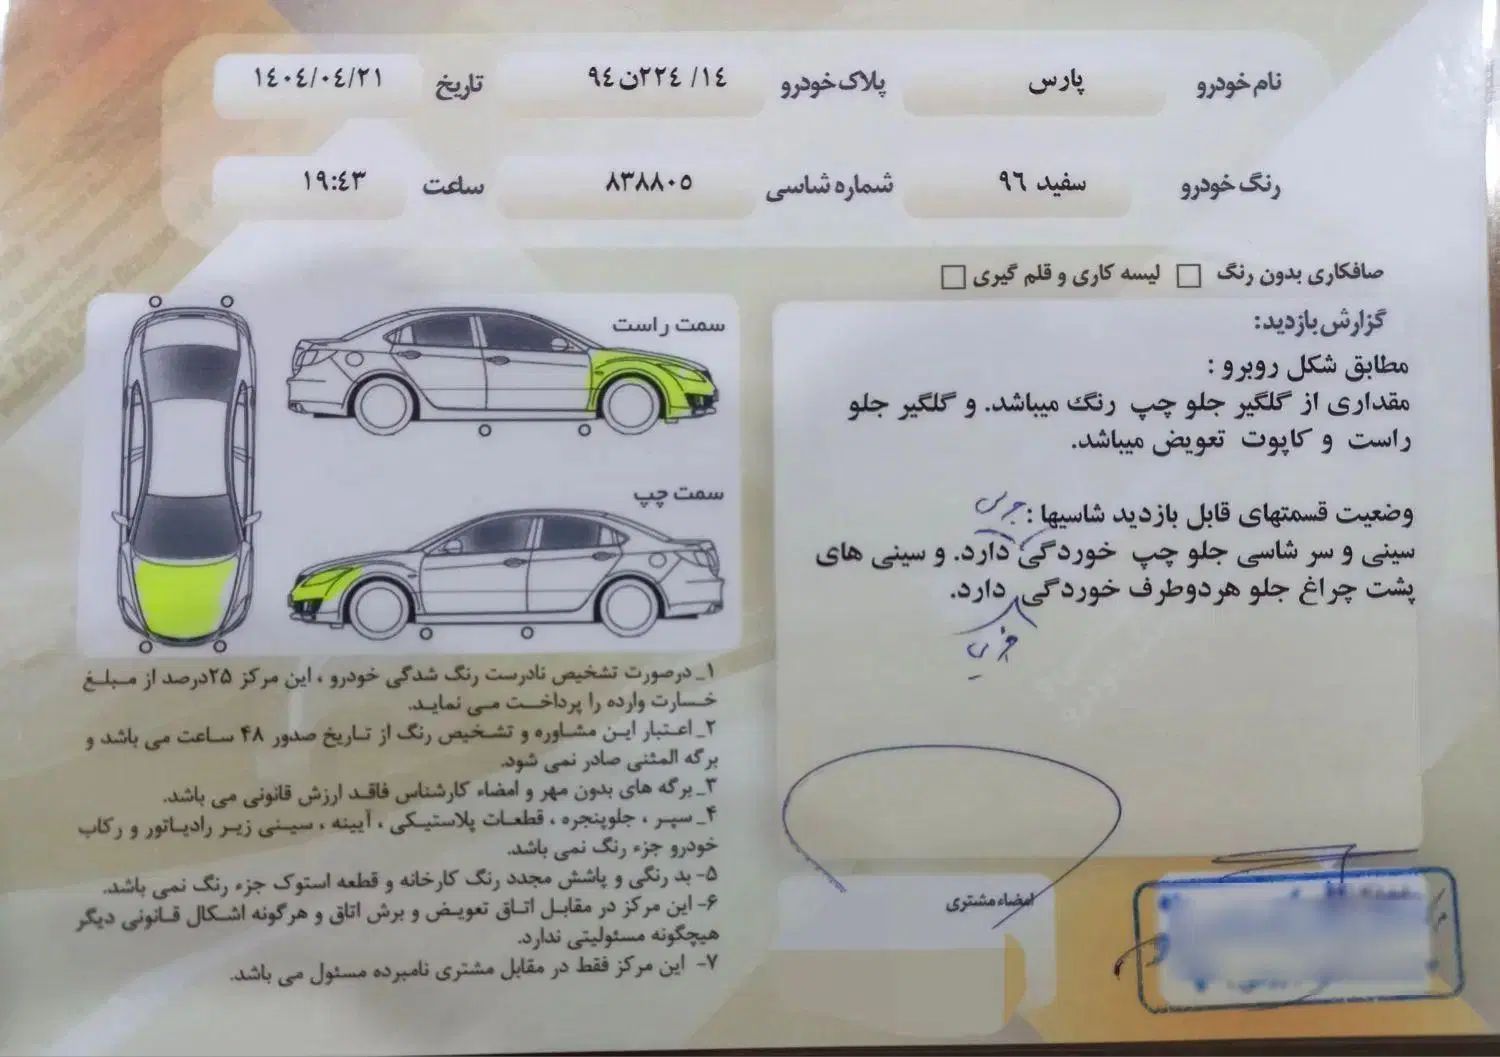 نام خودرو پارس پلاک خودرو ۱۴/ ۲۲۴ن۹۴ تاریخ ۱۴۰۴/۰۴/۲۱
رنگ خودرو سفید ۹۶ شماره شاسی ۸۳۸۸۰۵ ساعت ۱۹:۴۳
صافکاری بدون رنگ □ لیسه کاری و قلم گیری □
گزارش بازدید:
مطابق شکل روبرو :
مقداری از گلگیر جلو چپ رنگ میباشد. و گلگیر جلو
راست و کاپوت تعویض میباشد.
وضعیت قسمتهای قابل بازدید شاسیها :
جزئی
سینی و سر شاسی جلو چپ خوردگی دارد. و سینی های
پشت چراغ جلو هردوطرف خوردگی دارد.
جزئی
امضاء مشتری
سمت راست
سمت چپ
۱_ درصورت تشخیص نادرست رنگ شدگی خودرو ، این مرکز ۲۵درصد از مبلغ
خسارت وارده را پرداخت می نماید.
۲_ اعتبار این مشاوره و تشخیص رنگ از تاریخ صدور ۴۸ ساعت می باشد و
برگه المثنی صادر نمی شود.
۳_ برگه های بدون مهر و امضاء کارشناس فاقد ارزش قانونی می باشد.
۴_ سپر ، جلوپنجره ، قطعات پلاستیکی ، آیینه ، سینی زیر رادیاتور و رکاب
خودرو جزء رنگ نمی باشد.
۵- بد رنگی و پاشش مجدد رنگ کارخانه و قطعه استوک جزء رنگ نمی باشد.
۶- این مرکز در مقابل اتاق تعویض و برش اتاق و هرگونه اشکال قانونی دیگر
هیچگونه مسئولیتی ندارد.
۷- این مرکز فقط در مقابل مشتری نامبرده مسئول می باشد.